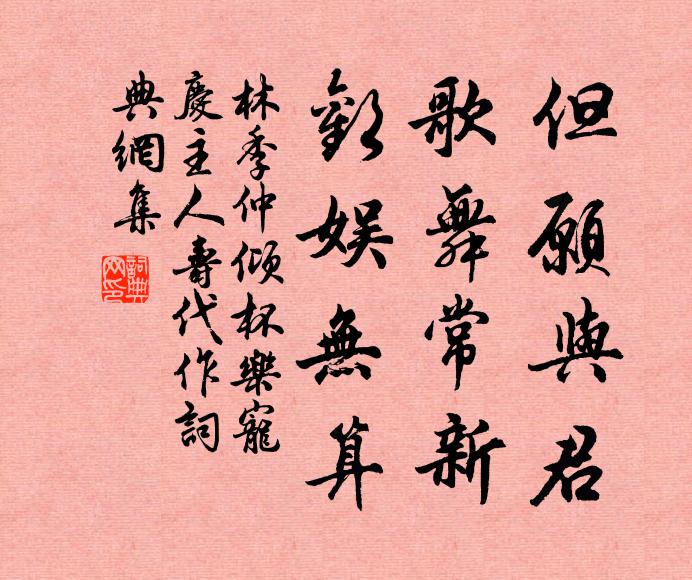 但願與君
歌舞常新
歡娱無算
林季仲傾杯樂寵
慶主人壽代作詞
典網集
詞典
网印